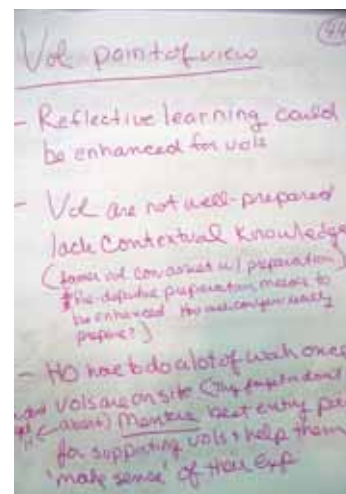 44
Vol point of view
- Reflective learning could
be enhanced for vols
- Vol are not well-prepared
lack Contextual Knowledge
(some not w/ preparation)
preparation means to
be enhanced How can
prepare?)
- HO have to do a lot of work once
vols are on site
Mentors best entry
for supporting vols & help them
'make sense' of their exp